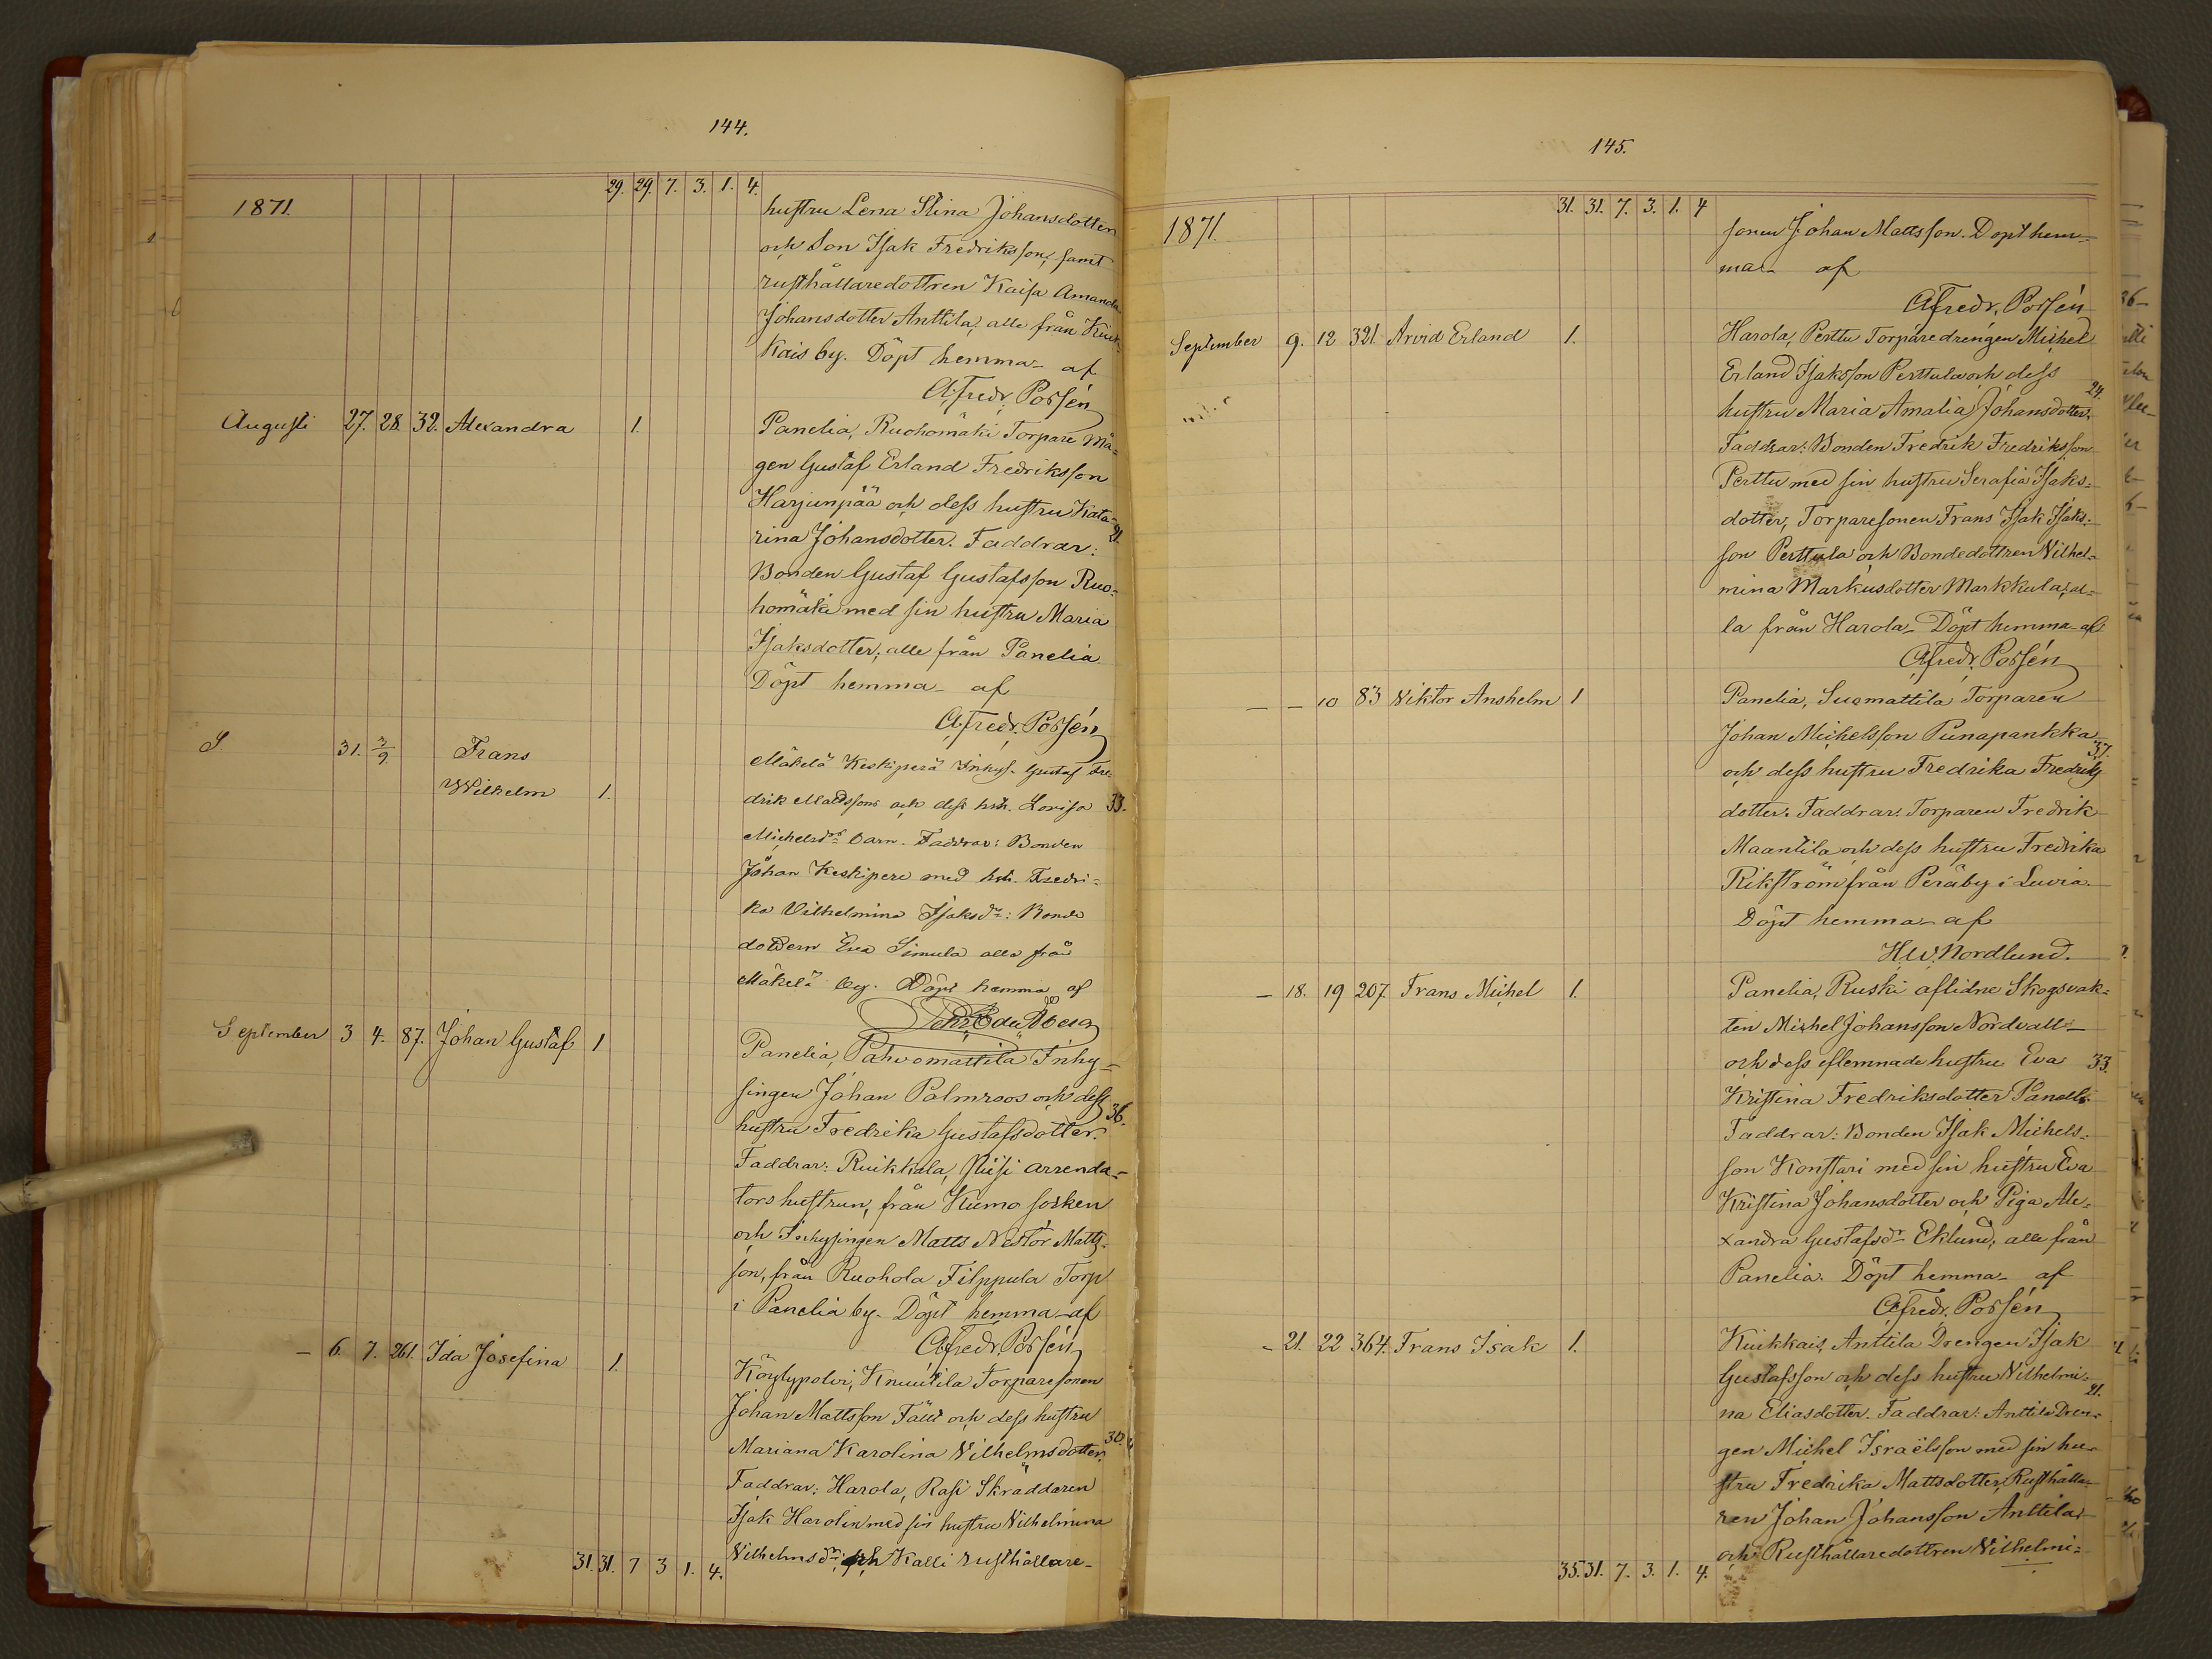 144.
1871.
29. 29. 7. 3. 1. 4.
hustru Lena Stina Johansdotter
och Son Isak Fredriksson, samt
rusthållaredottren Kaisa Amanda
Johansdotter Anttila, alle från Kiuk-
kais by. Döpt hemma af
A. Fredr. Porsén
Augusti 27. 28. 32. Alexandra 1.
Panelia, Ruohomäki Torpare Må-
gen Gustaf Erland Fredriksson
Harjunpää och dess hustru Kata- 21.
rina Johansdotter. Faddrar:
Bonden Gustaf Gustafsson Ruo-
homäki med sin hustru Maria
Isaksdotter, alle från Panelia
Döpt hemma af
A. Fredr. Porsén
S 31. 3/9 Frans
Wilhelm 1.
Mäkelä Keskiperä Inhys. Gustaf Fre-
drik Mattssons och dess hstr. Lovisa 33.
Michelsdrs barn. Faddrar: Bonden
Johan Keskipere med hstr. Fredri-
ka Vilhelmina Isaksdr: Bonde
dottern Eva Simula alla från
Mäkelä by. Döpt hemma af
September 3 4. 87. Johan Gustaf 1
Panelia, Pahvomattila Inhy-
singen Johan Palmroos och dess 36.
hustru Fredrika Gustafsdotter.
Faddrar: Ruikkala, arrenda-
tors hustrun, från Kumo socken
och Inhysingen Matts Nestor Matts-
son, från Ruohola Filppula Torp
i Panelia by. Döpt hemma af
A. Fredr. Porsén
- 6. 7. 261. Ida Josefina 1.
Köylypolvi, Knuutila Torparesonen
Johan Mattsson och dess hustru
Mariana Karolina Vilhelmsdotter. 30.
Faddrar: Harola, Rasi Skräddaren
Isak Harolin med sin hustru Vilhelmina
Vilhelmsdr; och Kalli rusthållare-
31. 31. 7 3 1. 4.
145.
1871.
31. 31. 7. 3. 1. 4
sonen Johan Mattsson. Döpt hem-
ma af
A. Fredr. Porsén
September 9. 12 321. Arvid Erland 1.
Harola, Perttu Torparedrengen Michel
Erland Isaksson Perttula och dess 24.
hustru Maria Amalia Johansdotter.
Faddrar: Bonden Fredrik Fredriksson
Perttu med sin hustru Serafia Isaks-
dotter, Torparesonen Frans Isak Isaks-
son Perttula och Bondedottren Vilhel-
mina Markusdotter Markkula, al-
la från Harola. Döpt hemma af
A. Fredr. Porsén
- - 10 83 Viktor Anshelm 1
Panelia, Suomattila Torparen
Johan Michelsson Punapankka 37.
och dess hustru Fredrika Fredriks
dotter. Faddrar: Torparen Fredrik
Maantila och dess hustru Fredrika
Rikström från Peräby i Luvia.
Döpt hemma af
H.W. Nordlund.
- 18. 19 207. Frans Michel 1.
Panelia, Ruski aflidne Skogsvak-
ten Michel Johansson Nordvall
och dess eflemnade hustru Eva 33.
Kristina Fredriksdotter Panelli
Faddrar: Bonden Isak Michels-
son Konstari med sin hustru Eva
Kristina Johansdotter och Piga Ale-
xandra Gustafsdr Eklund; alle från
Panelia. Döpt hemma af
A. Fredr. Porsén
- 21. 22 364. Frans Isak 1.
Kiukkais, Anttila Drengen Isak
Gustafsson och dess hustru Vilhelmi- 21.
na Eliasdotter. Faddrar: Anttila Dren-
gen Michel Israëlsson med sin hu-
stru Fredrika Mattsdotter, Rusthålla-
ren Johan Johansson Anttila
och Rusthållaredottren Vilhelmi-
35. 31. 7. 3. 1. 4.